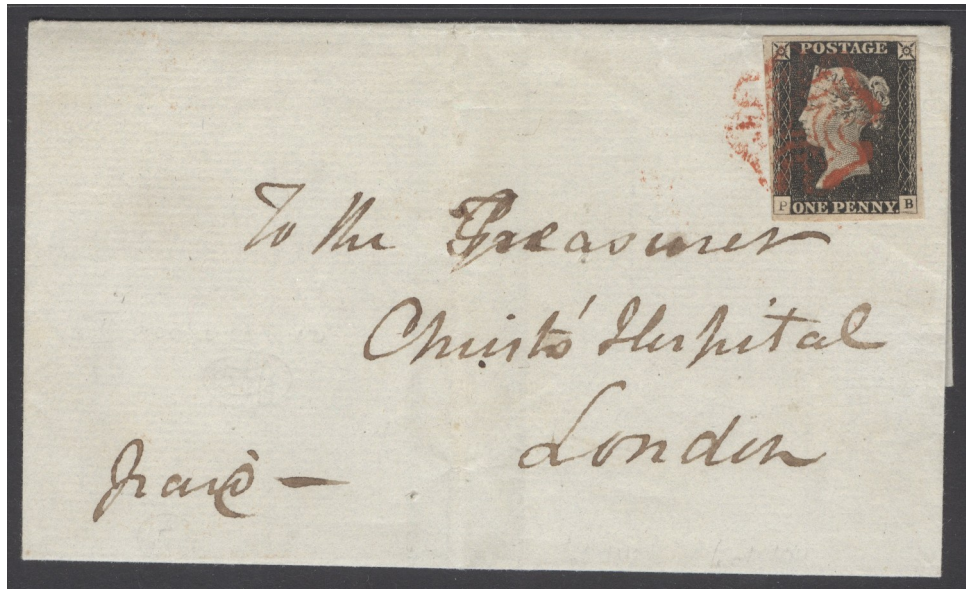 POSTAGE
P ONE PENNY. B
To the Treasurer
Christs' Hospital
London